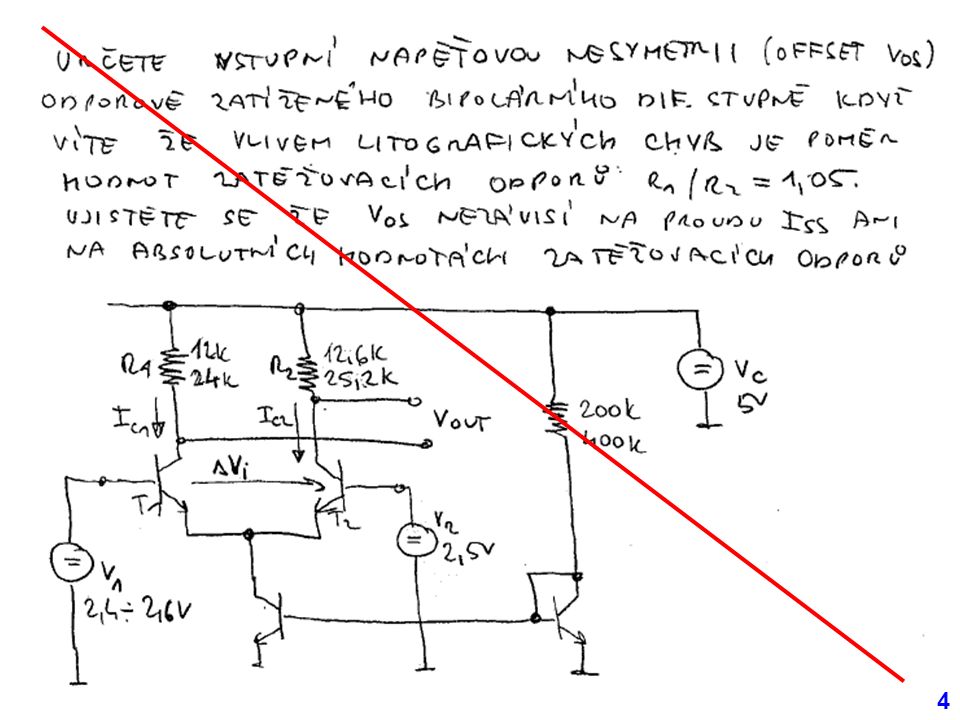 URČETE VSTUPNÍ NAPĚŤOVOU NESYMETRII (OFFSET VOS)
ODPOROVĚ ZATÍŽENÉHO BIPOLÁRNÍHO DIF. STUPNĚ KDYŽ
VÍTE ŽE VLIVEM LITOGRAFICKÝCH CHYB JE POMĚR
HODNOT ZATĚŽOVACÍCH ODPORŮ R1/R2 = 1,05.
UJISTĚTE SE ŽE VOS NEZÁVISÍ NA PROUDU ISS ANI
NA ABSOLUTNÍCH HODNOTÁCH ZATĚŽOVACÍCH ODPORŮ
R1 12k
24k
R2 12,6k
25,2k
VC
5V
IC1
IC2
VOUT
200k
400k
ΔVi
T1
T2
V2
2,5V
V1
2,4÷2,6V
4